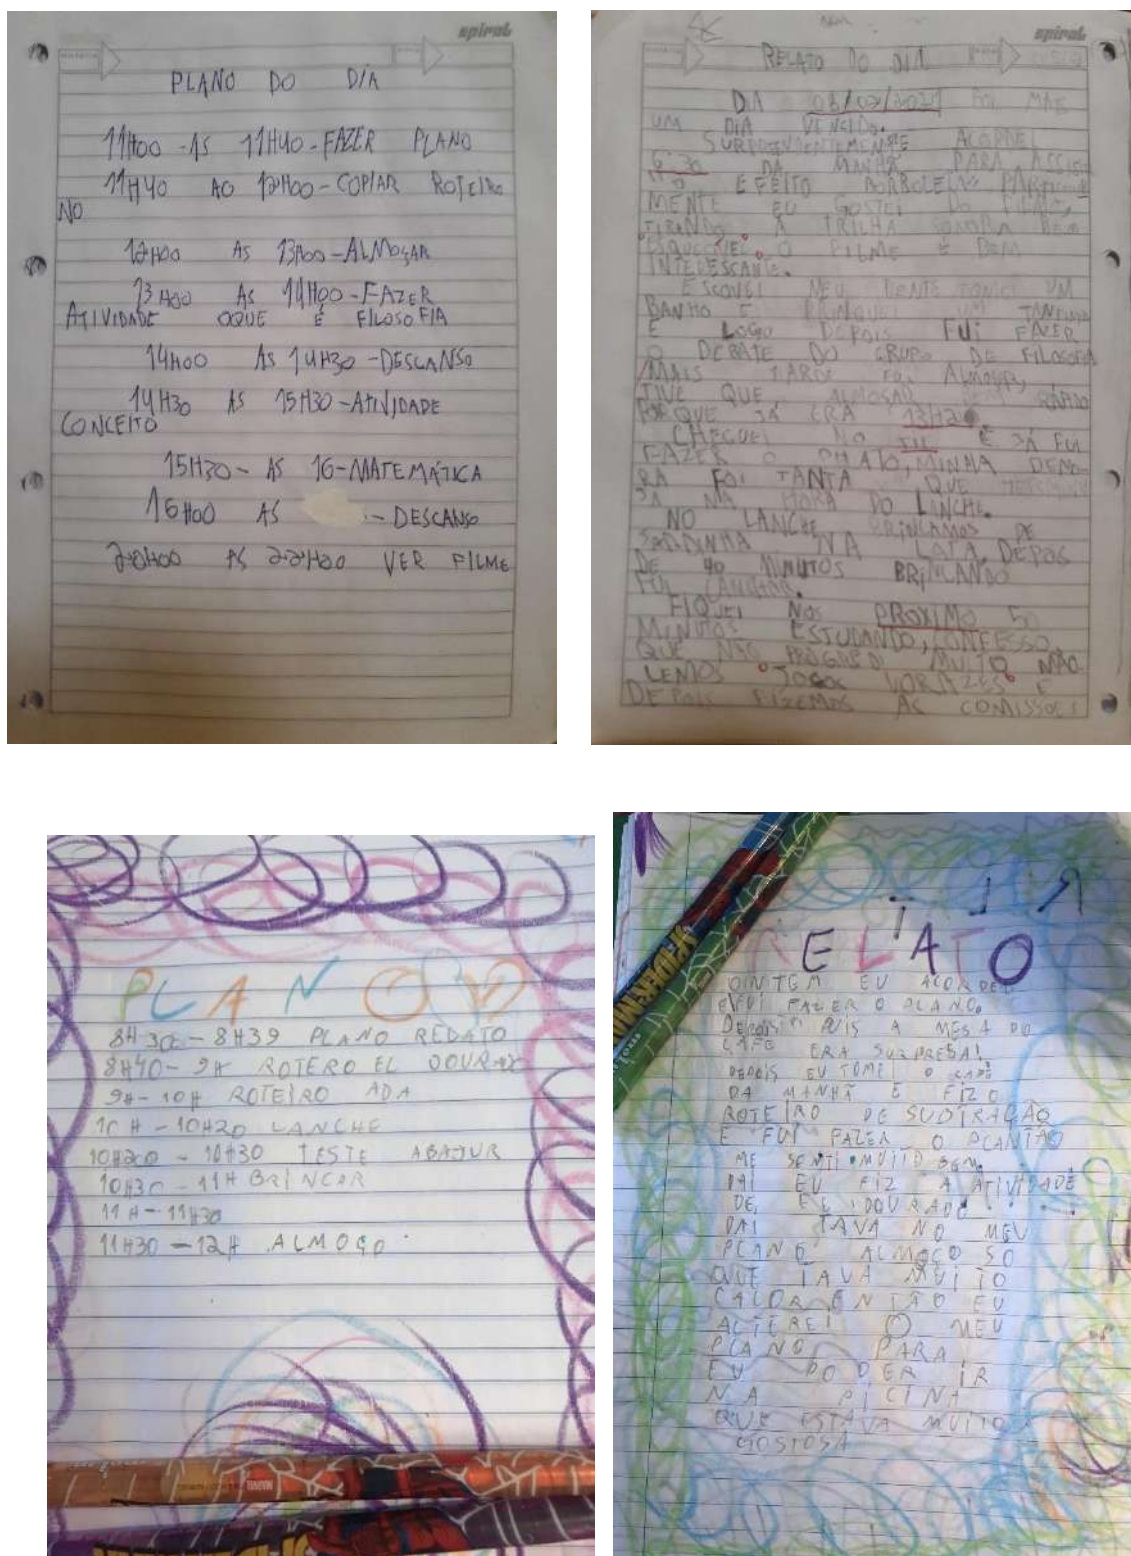 spiral
PLANO DO DIA
11H00 - AS 11H40 - FAZER PLANO
11H40 AO 12H00 - COPIAR ROTEIRO
NO
12H00 AS 13H00 - ALMOÇAR
13H00 AS 14H00 - FAZER
ATIVIDADE OQUE É FILOSOFIA
14H00 AS 14H30 - DESCANSO
14H30 AS 15H30 - ATIVIDADE
CONCEITO
15H30 - AS 16 - MATEMÁTICA
16H00 AS - DESCANSO
20H00 AS 22H20 VER FILME
spiral
RELATO DO DIA
DIA FOI MAIS
UM DIA VENCIDO.
ACORDEI
6:30 DA MANHÃ PARA
O EFEITO BORBOLETA
MENTE EU GOSTEI DO FINAL,
TIRANDO A TRILHA SONORA
O FILME É BEM
ESCOVEI MEU DENTE TOMEI UM
BANHO E BRINQUEI UM
E LOGO DEPOIS FUI FAZER
O DEBATE DO GRUPO DE FILOSOFIA
MAIS TARDE FOI ALMOÇAR,
TIVE QUE ALMOÇAR
QUE JÁ ERA
CHEGUEI NO E JÁ FUI
FAZER O MINHA DEMO
RA FOI TANTA QUE
JÁ NA HORA DO LANCHE.
NO LANCHE BRINCAMOS DE
SARDINHA NA LATA, DEPOIS
DE 40 MINUTOS BRINCANDO
FUI LANCHAR.
FIQUEI NOS PROXIMO 50
MINUTOS ESTUDANDO, CONFESSO
QUE NÃO MUITO NÃO
LEMOS "JOGOS VORAZES" E
DEPOIS FIZEMOS AS COMISSOES
PLANO
8H30 - 8H39 PLANO RELATO
8H40 - 9H ROTERO EL DOURADO
9H - 10H ROTEIRO ADA
10H - 10H20 LANCHE
10H20 - 10H30 TESTE ABAJUR
10H30 - 11H BRINCAR
11H - 11H30
11H30 - 12H ALMOÇO
RELATO
ONTEM EU ACORDEI
FAZER O PLANO.
DEPOIS PUIS A MESA DO
CAFÉ ERA SURPRESA!
DEPOIS EU TOMEI O CAFÉ
DA MANHÃ E FIZ O
ROTEIRO DE SUBTRAÇÃO
E FUI FAZER O PLANTÃO
ME SENTI MUITO BEM.
DAI EU FIZ A ATIVIDADE
DE EL DOURADO
DAI TAVA NO MEU
PLANO ALMOÇO SO
QUE TAVA MUITO
CALOR ENTÃO EU
ALTEREI O MEU
PLANO PARA
EU PODER IR
NA PICINA
QUE ESTAVA MUITO
GOSTOSA